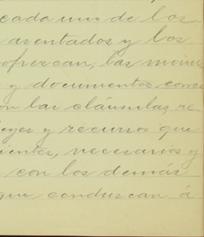 cada uno de los
asentados y los
ofrezcan, las
y documentos
on las cláusulas, re
leyes y recursos que
necesarios y
con los demás
que conduzcan á